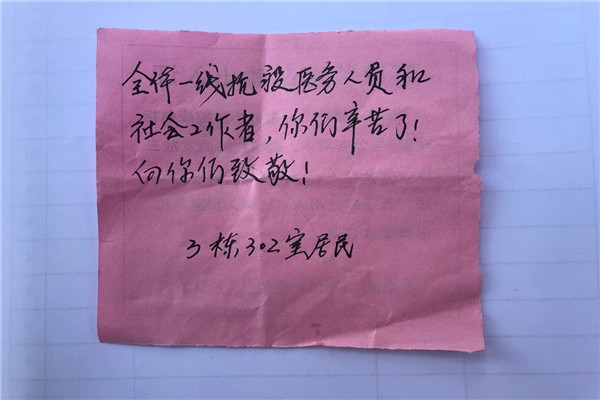 全体一线抗疫医务人员和
社会工作者，你们辛苦了！
向你们致敬！
3栋302室居民